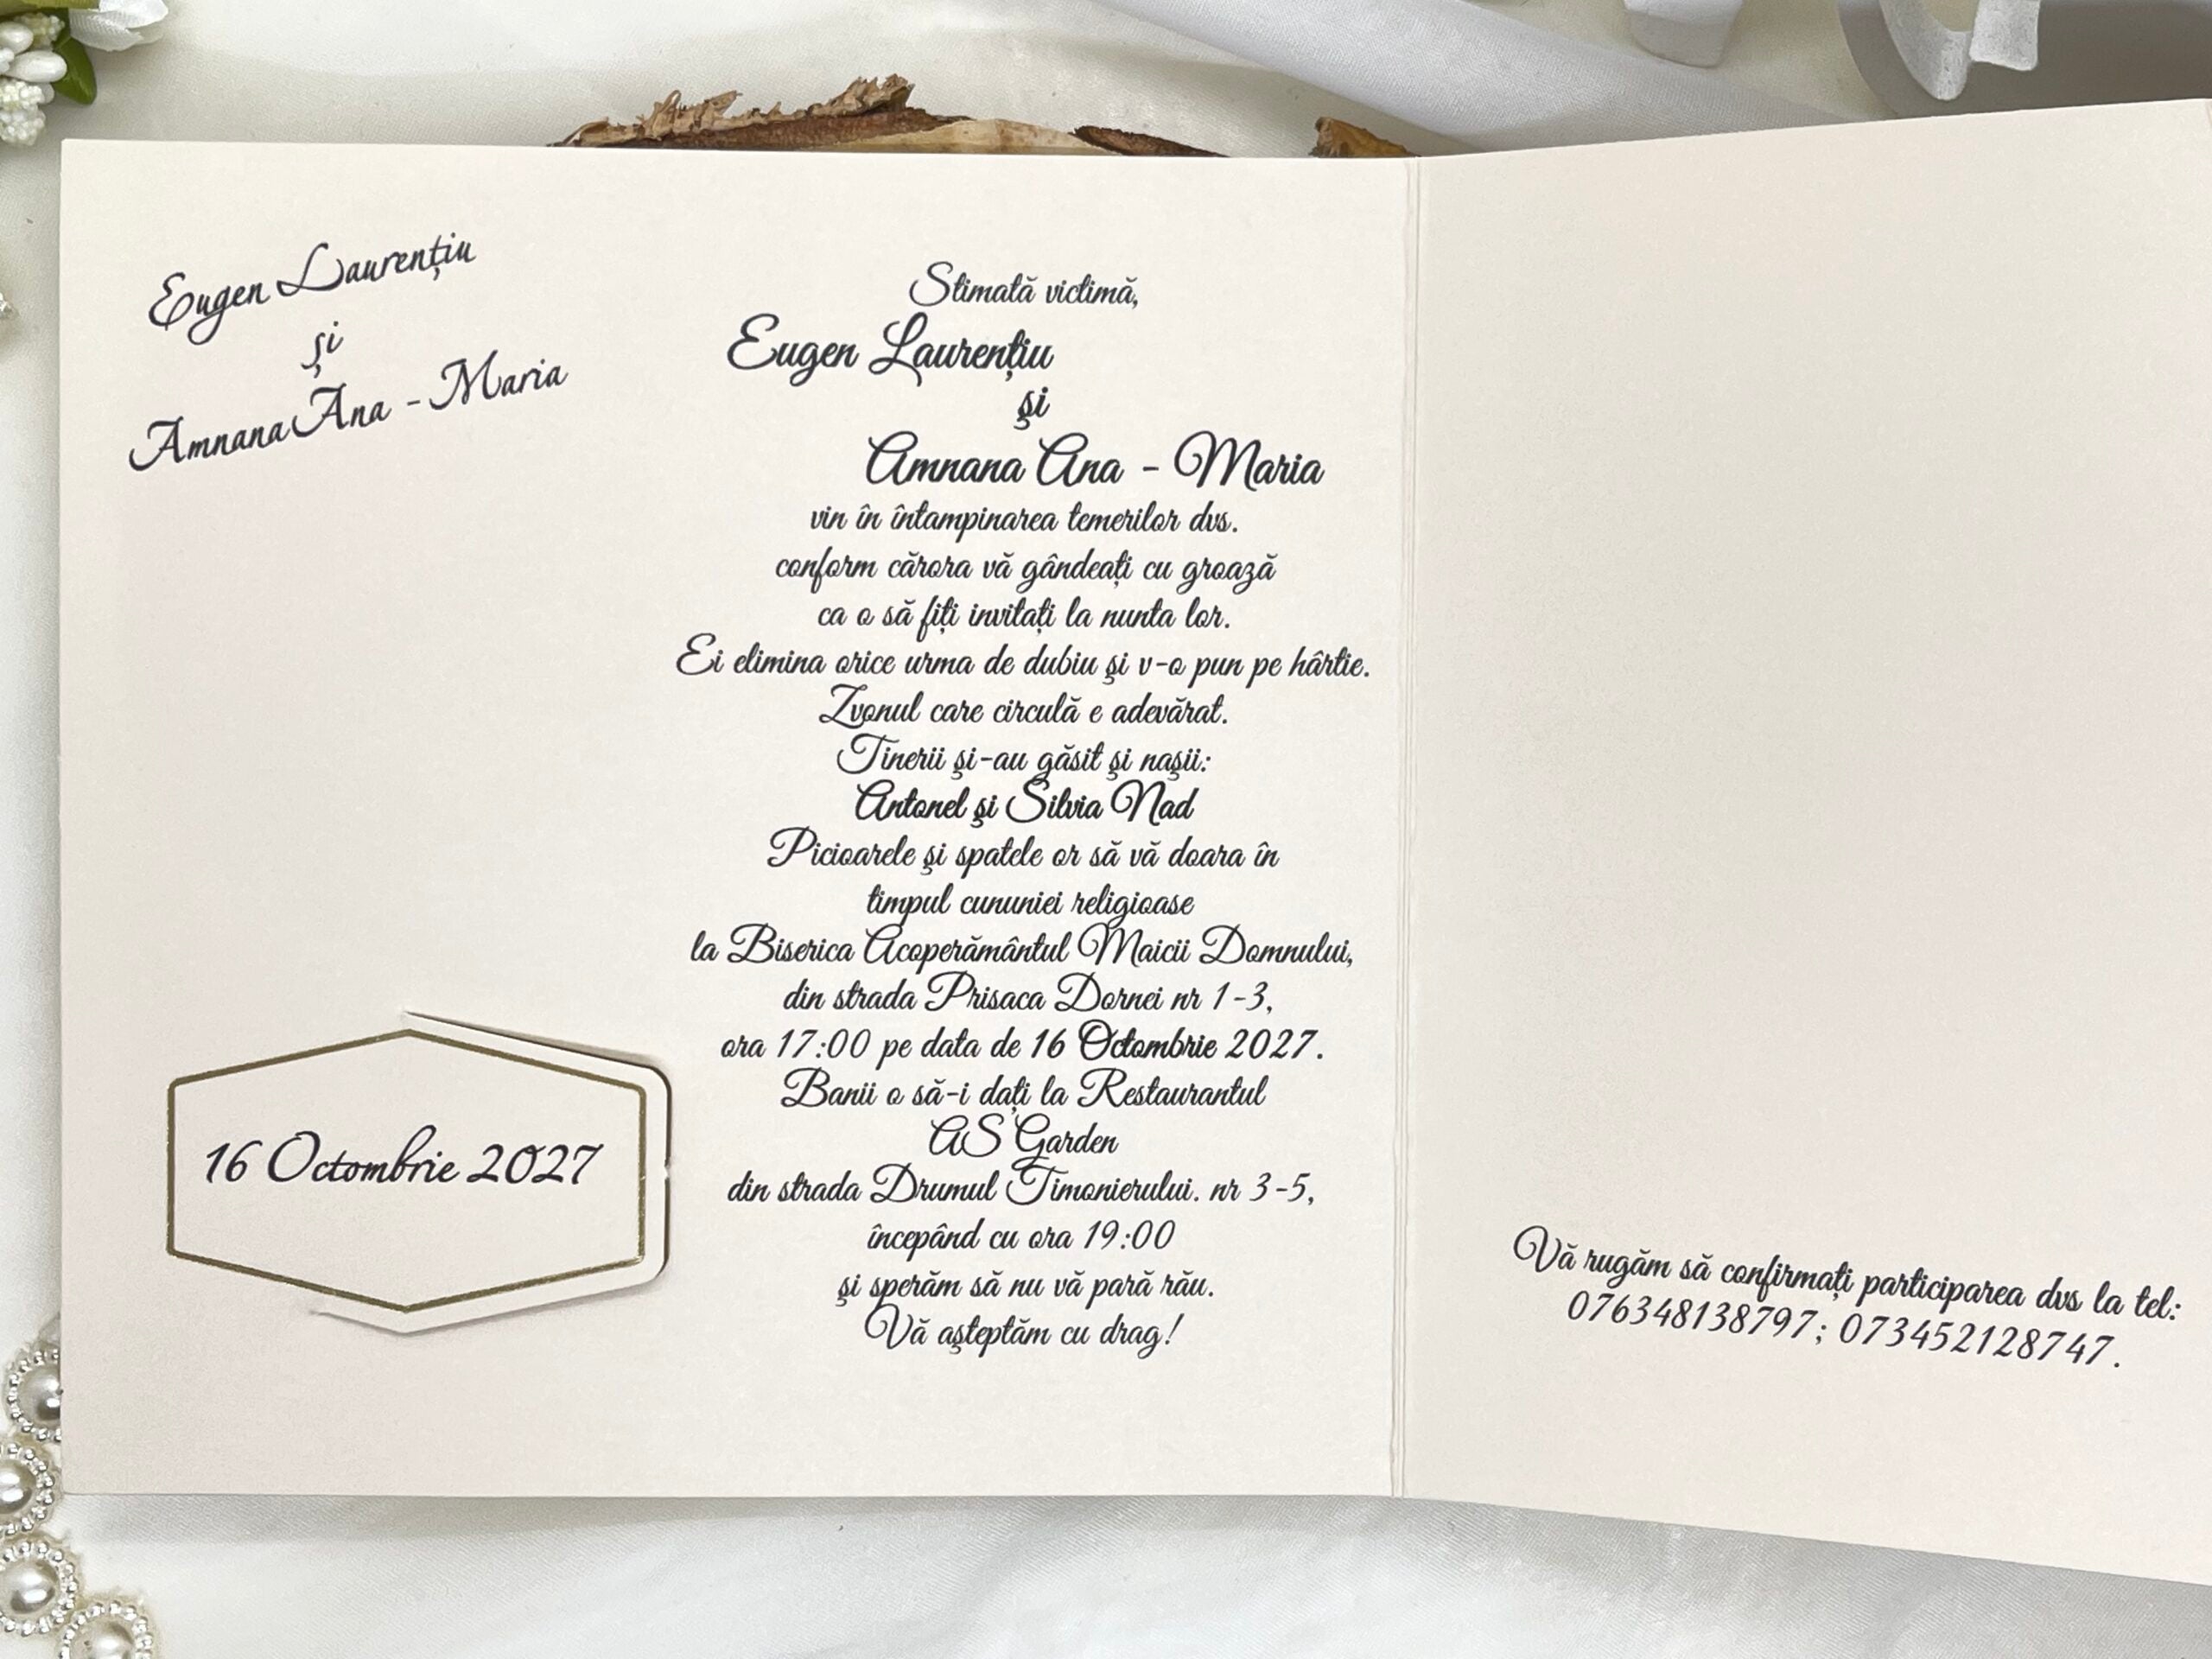 Eugen Laurențiu
și
Amnana Ana - Maria
16 Octombrie 2027
Stimată victimă,
Eugen Laurențiu
şi
Amnana Ana - Maria
vin în întampinarea temerilor dvs.
conform cărora vă gândeați cu groază
ca o să fiți invitați la nunta lor.
Ei elimina orice urma de dubiu şi v-o pun pe hârtie.
Zvonul care circulă e adevărat.
Tinerii şi-au găsit şi naşii:
Antonel şi Silvia Nad
Picioarele şi spatele or să vă doara în
timpul cununiei religioase
la Biserica Acoperământul Maicii Domnului,
din strada Prisaca Dornei nr 1-3,
ora 17:00 pe data de 16 Octombrie 2027.
Banii o să-i dați la Restaurantul
AS Garden
din strada Drumul Timonierului. nr 3-5,
începând cu ora 19:00
şi sperăm să nu vă pară rău.
Vă aşteptăm cu drag!
Vă rugăm să confirmați participarea dvs la tel:
076348138797; 073452128747.